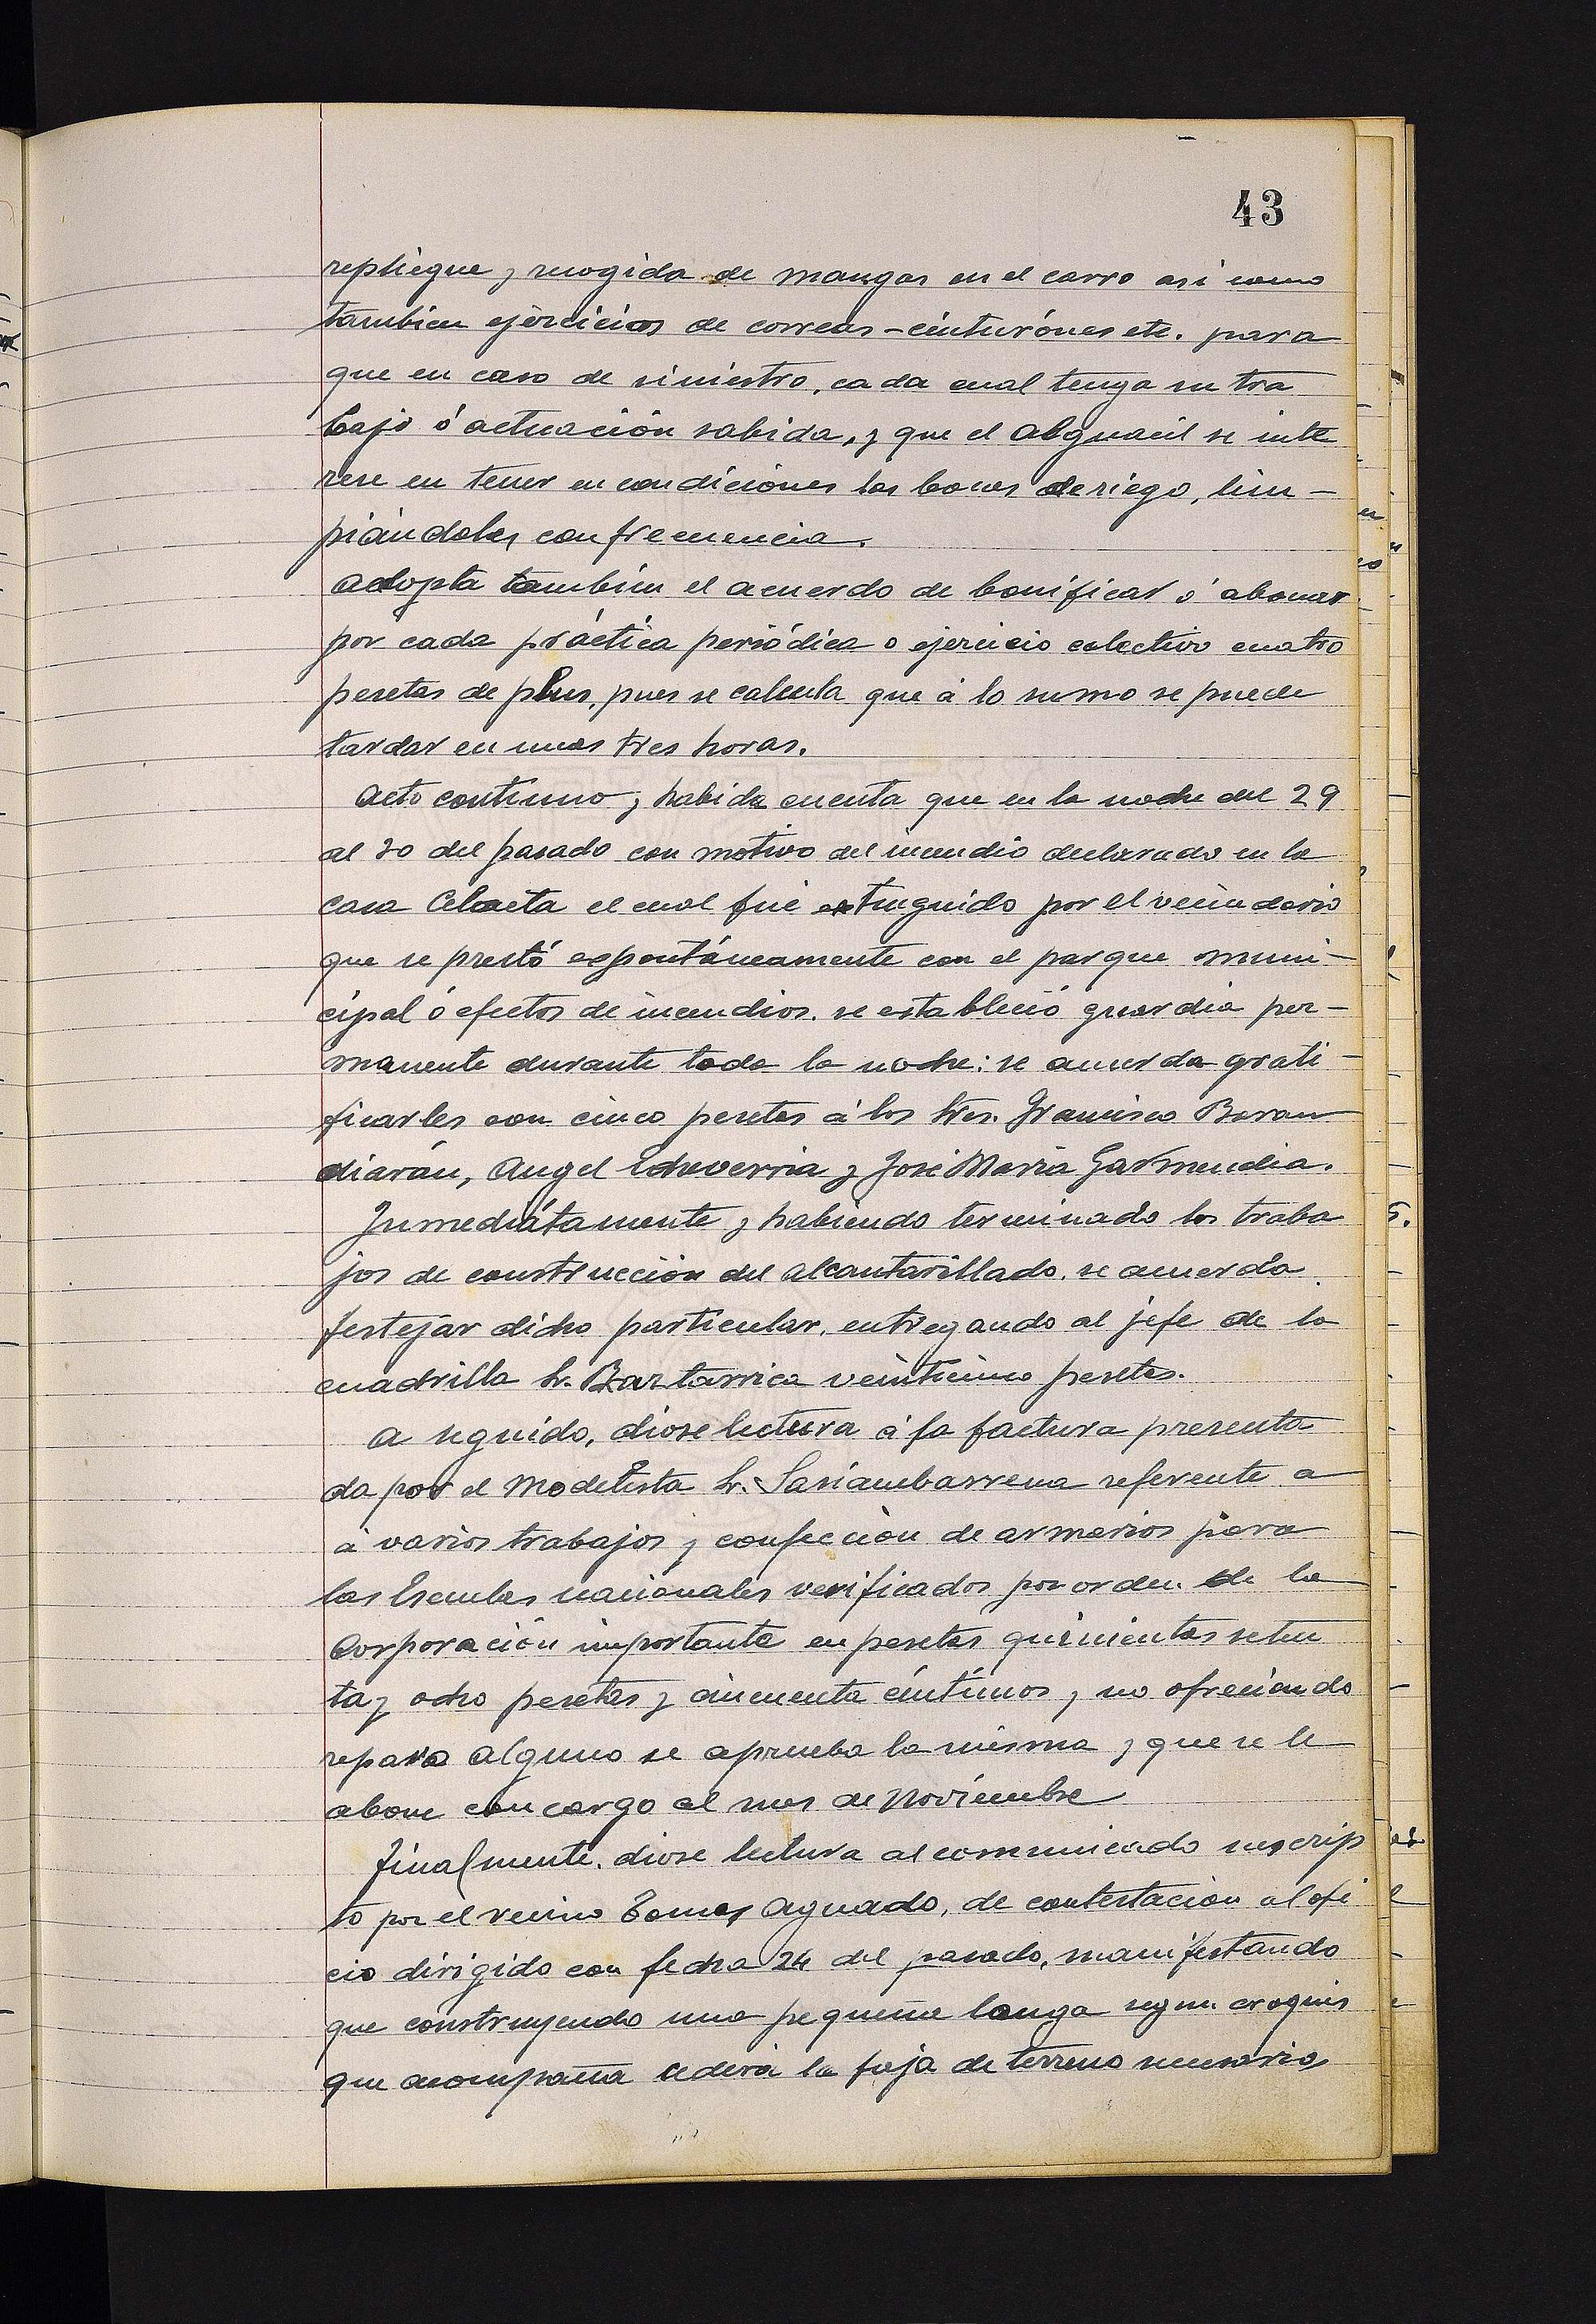 43
repliegue y recogida de mangas en el carro asi como
tambien ejercicios de correas-cinturónes etc. para
que en caso de siniestro, cada cual tenga su tra
bajo ó actuación sabida, y que el alguacil se inte
rese en tener en condiciones las bocas de riego, lim-
piándoles con frecuencia.
adopta tambien el acuerdo de bonificar ó abonar
por cada práctica periódica o ejercicio colectivo cuatro
pesetas de plus, pues se calcula que á lo sumo se puede
tardar en unas tres horas.
Acto continuo y habida cuenta que en la noche del 29
al 30 del pasado con motivo del incendio declarado en la
casa el cual fué extinguido por el vecindario
que se prestó expontáneamente con el parque muni-
cipal ó efectos de incendios. se estableció guardia per-
manente durante toda la noche: se acuerda grati-
ficarles con cinco pesetas á los Sres. Francisco Baran
diarán, Angel Echeverria y José Maria Garmendia.
Inmediátamente y habiendo terminado los traba
jos de construcción del alcantarillado. se acuerda
festejar dicho particular, entregando al jefe de la
cuadrilla Sr. Baztarrica veinticinco pesetas.
A seguido, diose lectura á la factura presenta
da por el Modelista Sr. Sasiambarrena referente a
á varios trabajos y confección de armarios para
las Escuelas nacionales verificados por orden de la
Corporación importante en pesetas quinientas seten
ta y ocho pesetas y cincuenta céntimos y no ofreciendo
reparo alguno se aprueba la misma y que se le
abone con cargo al mes de Noviembre
Finalmente. diose lectura al comunicado suscrip
to por el vecino Tomas Aguado, de contestación al ofi
cio dirigido con fecha 24 del pasado, manifestando
que construyendo una pequeña lonja segun croquis
que acompaña cederá la faja de terreno necesaria